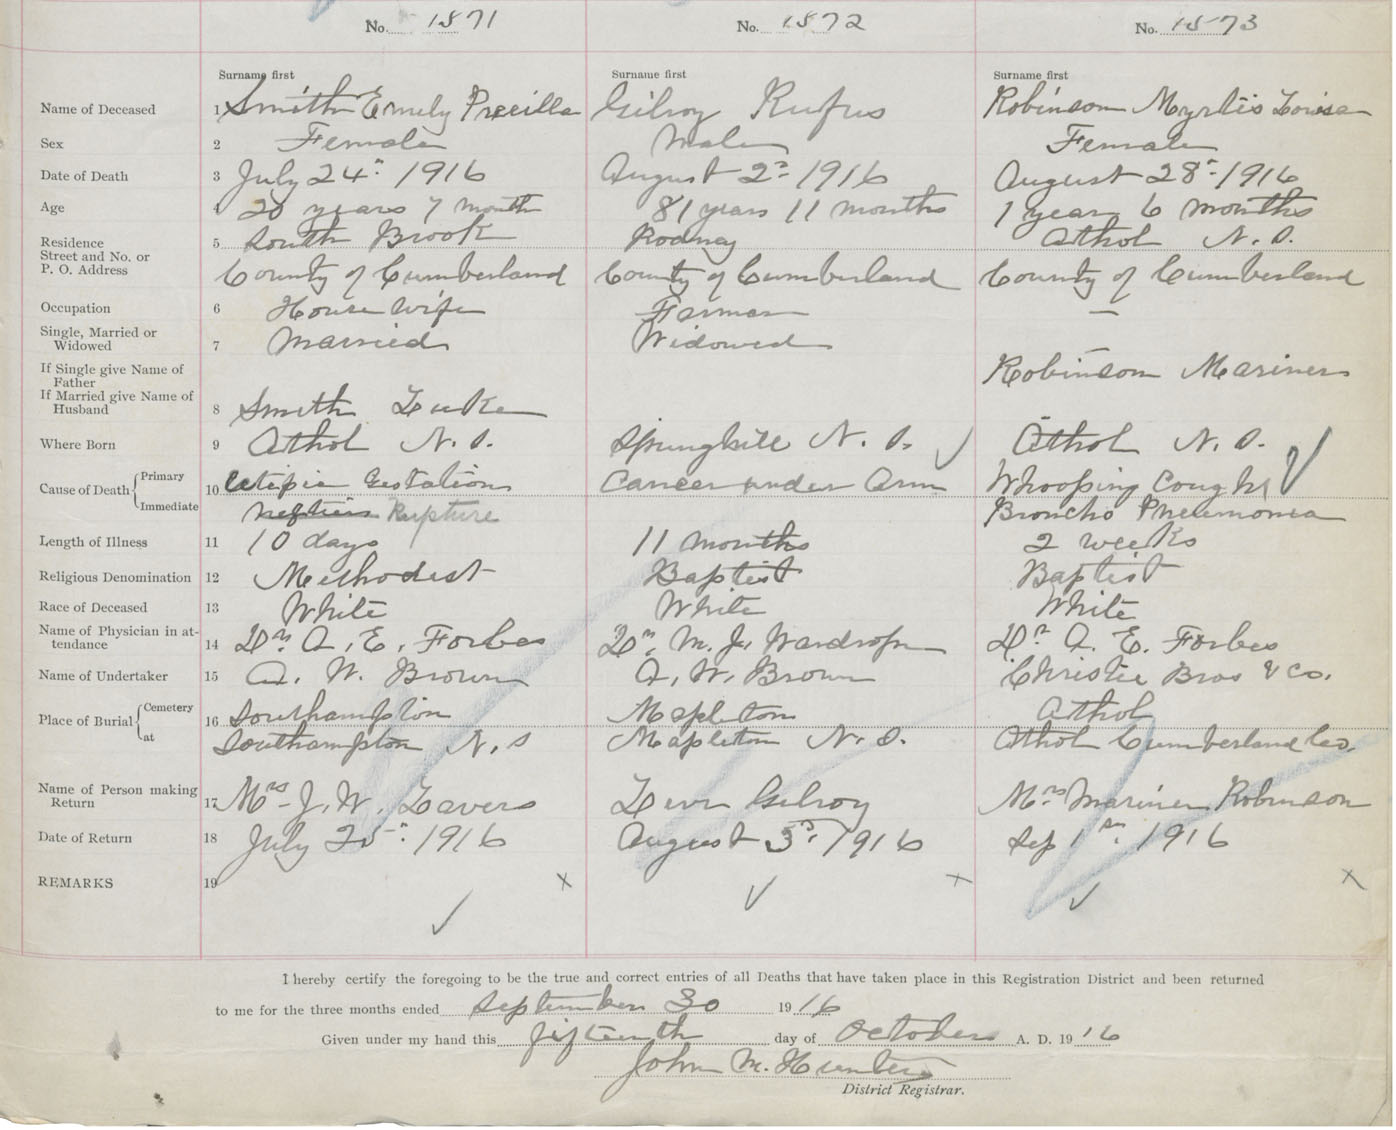 No. 1571 No. 1572 No. 1573
Surname first Surname first Surname first
Name of Deceased 1 Smith Emely Precilla Gilroy Rufus Robinson Myrtis Louisa
Sex 2 Female Male Female
Date of Death 3 July 24th 1916 August 2nd 1916 August 28th 1916
Age 4 20 years 7 month 81 years 11 months 1 year 6 months
Residence 5 South Brook Rodney Athol N.S.
Street and No. or
P. O. Address County of Cumberland County of Cumberland County of Cumberland
Occupation 6 House Wife Farmer —
Single, Married or
Widowed 7 Married Widowed
If Single give Name of
Father Robinson Mariner
If Married give Name of
Husband 8 Smith Luke
Where Born 9 Athol N.S. Springhill N.S. Athol N.S.
Cause of Death Primary 10 Gestation Cancer under Arm Whooping Cough
Immediate Rupture Broncho Pneumonia
Length of Illness 11 10 days 11 months 2 weeks
Religious Denomination 12 Methodist Baptist Baptist
Race of Deceased 13 White White White
Name of Physician in at-
tendance 14 Dr. A. E. Forbes Dr. M. J. Wardrope Dr A. E. Forbes
Name of Undertaker 15 A. W. Brown A. W. Brown Christie Bros & Co.
Place of Burial Cemetery 16 Southampton Mapleton Athol
at Southampton N.S Mapleton N.S. Athol Cumberland Co.
Name of Person making
Return 17 Mrs J. W. Lavers Gilroy Mrs Mariner Robinson
Date of Return 18 July 25th 1916 August 3rd 1916 Sep 1st 1916
REMARKS 19
I hereby certify the foregoing to be the true and correct entries of all Deaths that have taken place in this Registration District and been returned
to me for the three months ended September 30 1916
Given under my hand this fifteenth day of October A. D. 1916
John M. Hunter
District Registrar.